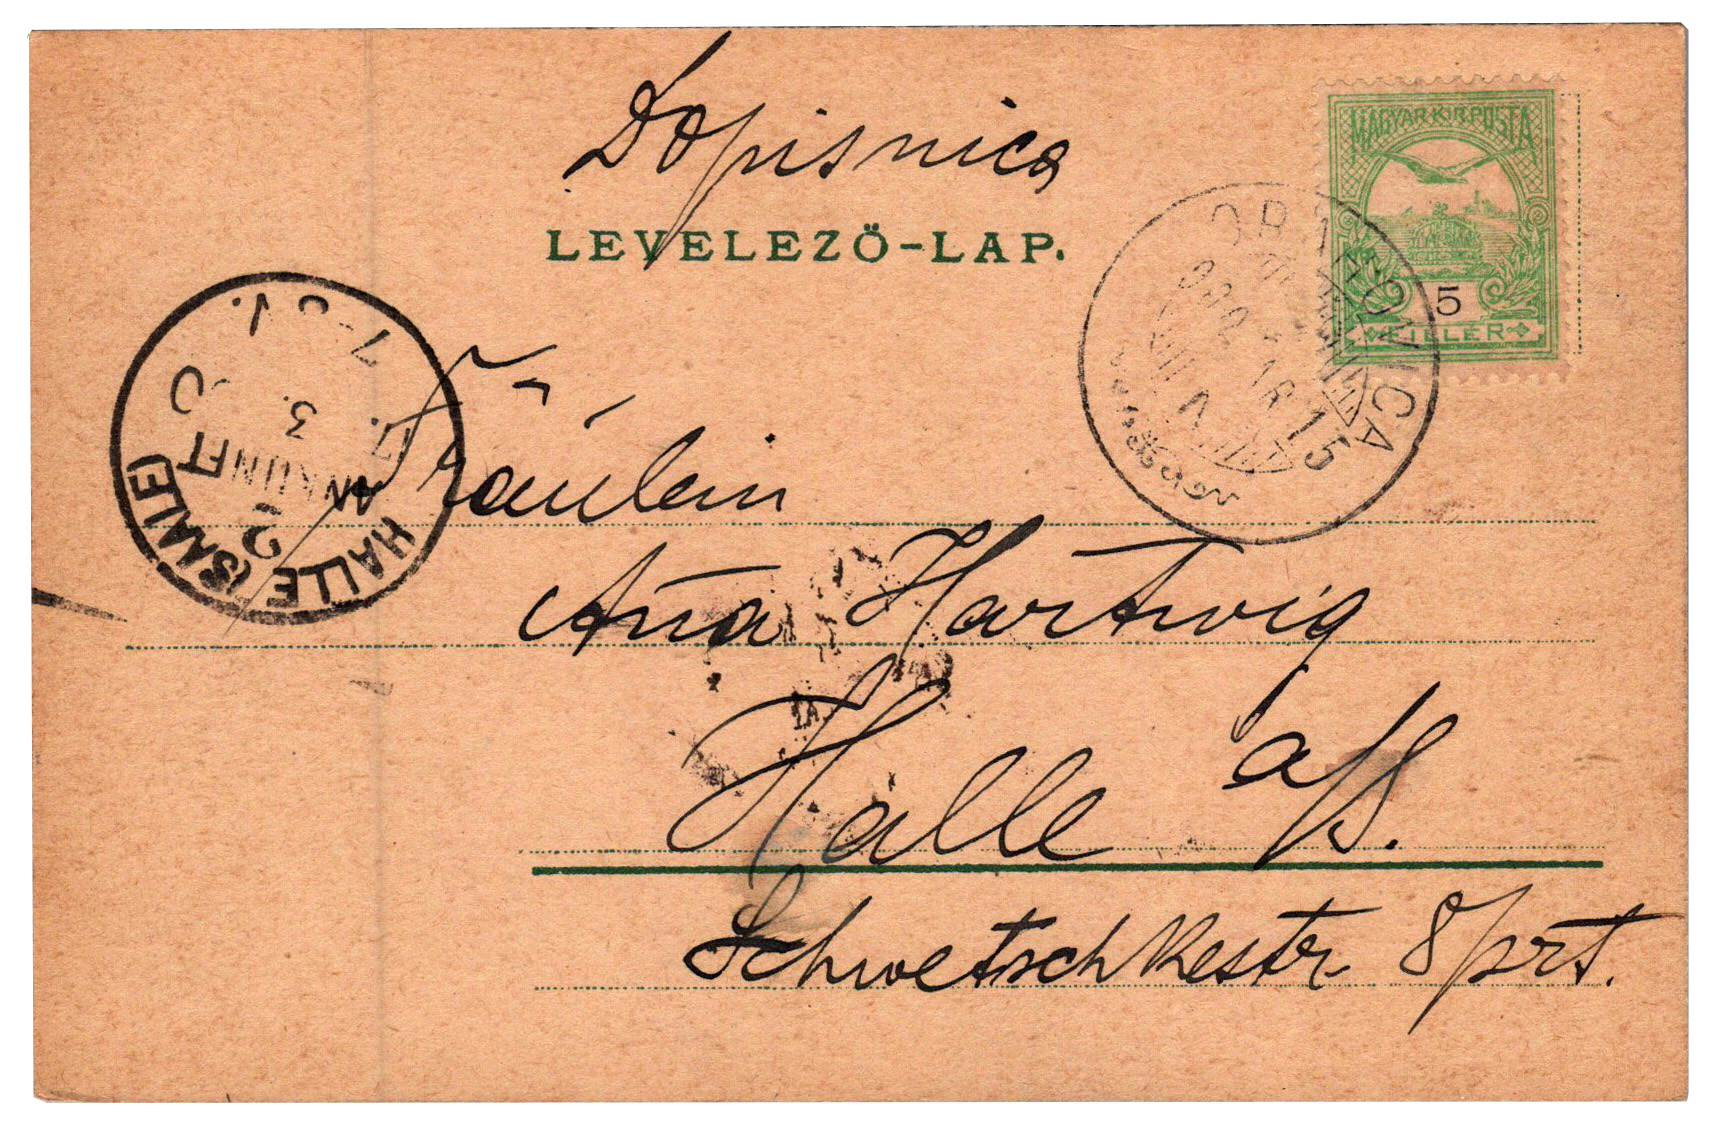 Dopisnica
LEVELEZŐ-LAP.
MAGYAR KIR. POSTA
5
FILLÉR
ORAHOVICA
900
15
HALLE (SAALE)
ANKUNFT
2
Fräulein
Ana Hartwig
Halle a/S.
Schwetschkestr. 8/prt.